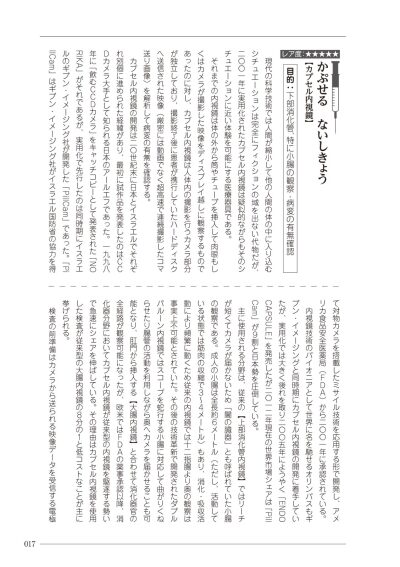 レア度：★★★★★
かぷせる　ないしきょう
【カプセル内視鏡】
目的：下部消化管、特に小腸の観察・病変の有無確認
現代の科学技術では人間が縮小して他の人間の体の中に入り込む
シチュエーションは完全にフィクションの域を出ない代物だが、
２００１年に実用化されたカプセル内視鏡は疑似的ながらもそのシ
チュエーションに近い体験を可能にする医療器具である。
それまでの内視鏡は体の外から筒やチューブを挿入して肉眼もし
くはカメラが撮影した映像をディスプレイ越しに観察するもので
あったのに対し、カプセル内視鏡は人体内の撮影を行うカメラ部分
が独立しており、撮影終了後に患者が携行していたハードディスク
へ送信された映像（厳密には動画でなく超高速で連続撮影したコマ
送り画像）を解析して病変の有無を確認する。
カプセル内視鏡の開発は二〇世紀末に日本とイスラエルでそれぞ
れ別個に進められた経緯があり、最初に試作品を発表したのはＣＣ
Ｄカメラ大手として知られる日本のアールエフであった。一九九八
年に「飲むＣＣＤカメラ」をキャッチコピーとして発表された「NO
RIKA」がそれであるが、実用化で先行したのは同時期にイスラエ
ルのギブン・イメージング社が開発した「PillCam」であった。「Pi
llCam」はギブン・イメージング社がイスラエル国防省の協力を得
て対物カメラを搭載したミサイル技術を応用する形で開発し、アメ
リカ食品医薬品局（ＦＤＡ）から二〇〇一年に承認されている。
内視鏡技術のパイオニアとして世界に名を馳せるオリンパスもギ
ブン・イメージングと同時期にカプセル内視鏡の開発に着手してい
たが、実用化では大きく後れを取り二〇〇五年にようやく「ENDO
CAPSULE」を発売したが二〇一二年現在の世界市場シェアは「Pill
Cam」が９割と日本勢を圧倒している。
主に使用される分野は、従来の【上部消化管内視鏡】ではリーチ
が短くてカメラが届かないため「闇の臓器」とも呼ばれていた小腸
の観察である。成人の小腸は全長約６メートル（ただし、活動して
いる状態では筋肉の収縮で３～４メートル）もあり、消化・吸収活
動により頻繁に動くため従来の内視鏡では十二指腸より奥の観察は
事実上不可能とされていた。その後の技術革新で開発されたダブル
バルーン内視鏡ではスコープを蛇行する小腸に対応して曲がりくね
らせたり腸管の活動を利用しながら奥へカメラを届かせることも可
能となり、肛門から挿入する【大腸内視鏡】と合わせて消化器官の
全経路が観察可能になったが、欧米ではＦＤＡの薬事承認以降、消
化器分野においてカプセル内視鏡が従来型の内視鏡を駆逐する勢い
で急速にシェアを伸ばしている。その理由はカプセル内視鏡を使用
した検査が従来型の大腸内視鏡の６分の１と低コストなことが主に
挙げられる。
検査の前準備はカメラから送られる映像データを受信する電極
017